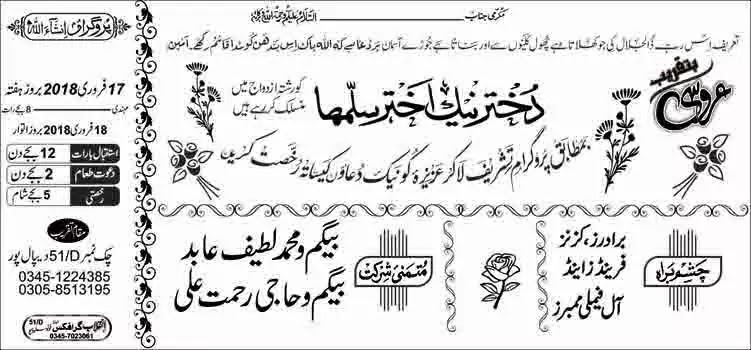 مکرمی جناب
السلام علیکم ورحمۃ اللہ وبرکاتہ
تعریف اس رب ذوالجلال کی جو کھلاتا ہے پھول کلیوں سے اور بناتا ہے جوڑے آسمان پر دعا ہے کہ اللہ پاک اس بندھن کو تا ابد قائم رکھے۔ آمین
بتقریب
عروسی
دختر نیک اختر سلمہا
کو رشتہ ازدواج میں
منسلک کر رہے ہیں
بمطابق پروگرام تشریف لا کر عزیزہ کو نیک دعاؤں کیساتھ رخصت کریں
چشم براہ
برادرز، کزنز
فرینڈز اینڈ
آل فیملی ممبرز
متمنی شرکت
بیگم و محمد لطیف عابد
بیگم و حاجی رحمت علی
پروگرام انشاء اللہ
17 فروری 2018 بروز ہفتہ
مہندی 8 بجے رات
18 فروری 2018 بروز اتوار
استقبال بارات 12 بجے دن
دعوت طعام 2 بجے دن
رخصتی 5 بجے شام
مقام تقریب
چک نمبر 51/D دیپال پور
0345-1224385
0305-8513195
انقلاب گرافکس 51/D
0345-7023061